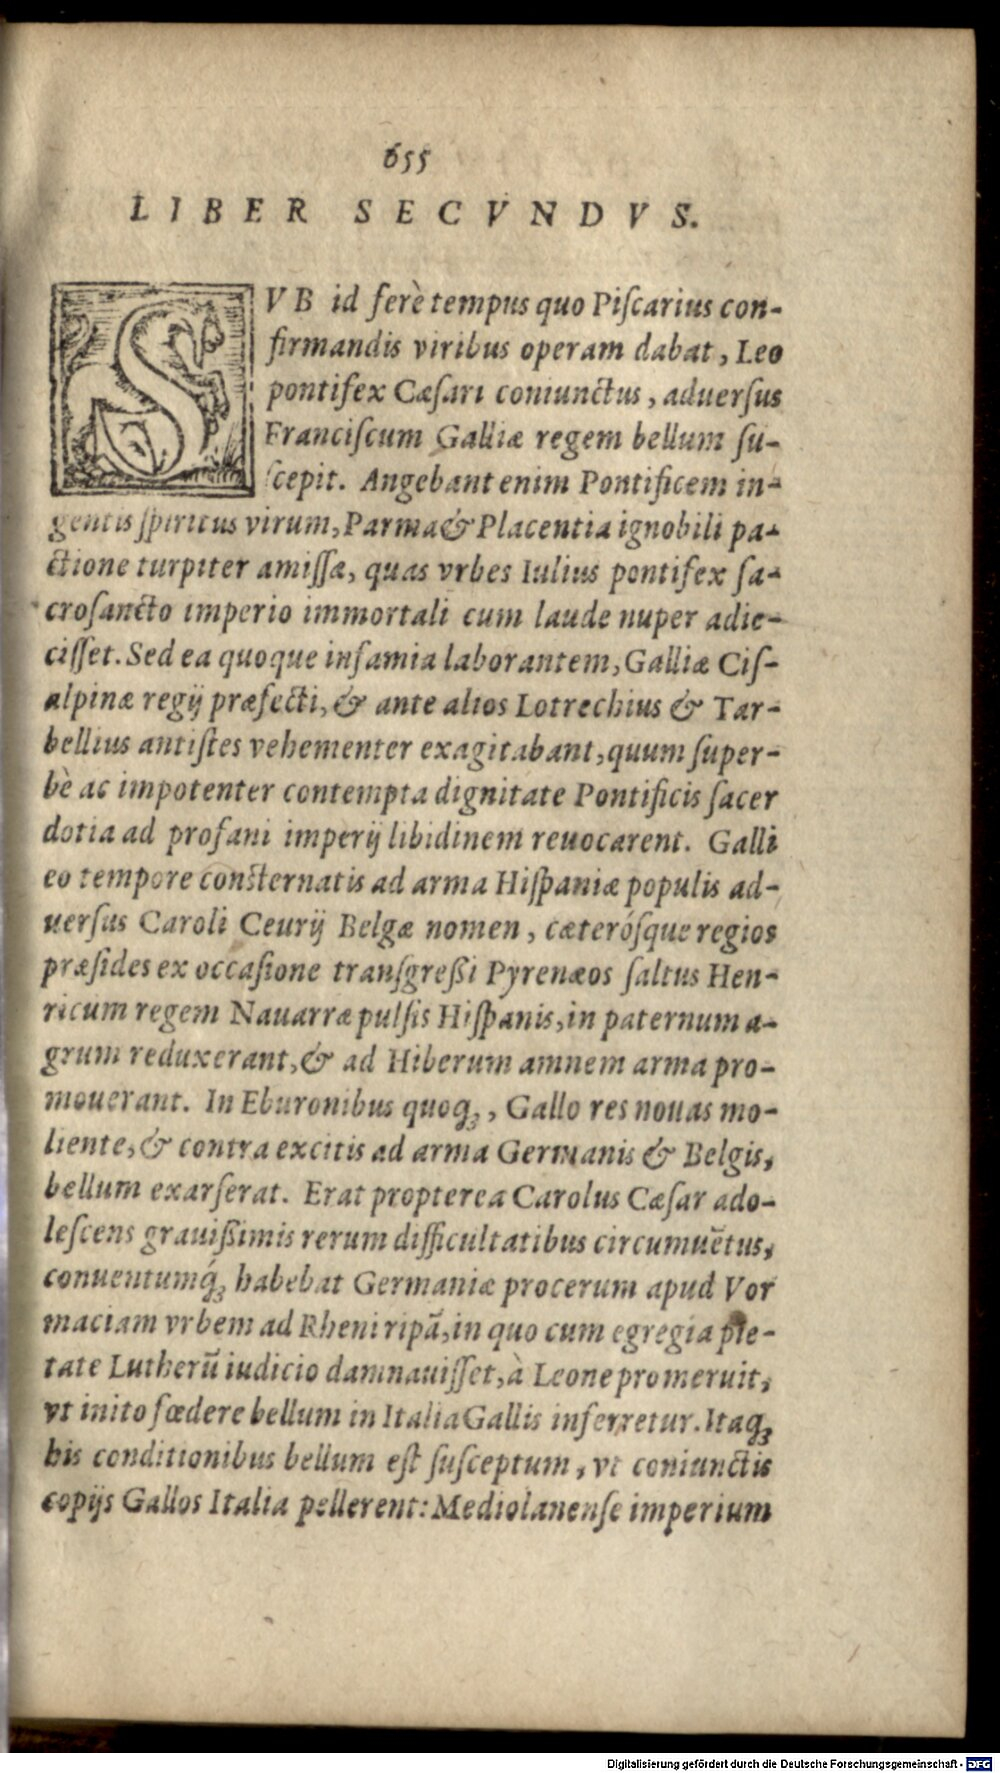 655
LIBER SECVNDVS.
SVB id ferè tempus quo Piſcarius con-
firmandis viribus operam dabat, Leo
pontifex Cæſari coniunctus, aduerſus
Franciſcum Galliæ regem bellum ſu-
ſcepit. Angebant enim Pontificem in-
gentis ſpiritus virum, Parma & Placentia ignobili pa-
ctione turpiter amiſſa, quas vrbes Iulius pontifex ſa-
croſancto imperio immortali cum laude nuper adie-
ciſſet. Sed ea quoque infamia laborantem, Galliæ Ciſ-
alpinæ regij præfecti, & ante alios Lotrechius & Tar-
bellius antiſtes vehementer exagitabant, quum ſuper-
bè ac impotenter contempta dignitate Pontificis ſacer
dotia ad profani imperij libidinem reuocarent. Galli
eo tempore conſternatis ad arma Hiſpaniæ populis ad-
uerſus Caroli Ceurij Belgæ nomen, cæteróſque regios
præſides ex occaſione tranſgreßi Pyrenæos ſaltus Hen-
ricum regem Nauarræ pulſis Hiſpanis, in paternum a-
grum reduxerant, & ad Hiberum amnem arma pro-
mouerant. In Eburonibus quoq́ꝫ, Gallo res nouas mo-
liente, & contra excitis ad arma Germanis & Belgis,
bellum exarſerat. Erat propterea Carolus Cæſar ado-
leſcens grauißimis rerum difficultatibus circumuẽtus,
conuentumq́ꝫ habebat Germaniæ procerum apud Vor
maciam vrbem ad Rheni ripã, in quo cum egregia pie-
tate Lutherũ iudicio damnauiſſet, à Leone promeruit,
vt inito fœdere bellum in Italia Gallis inferretur. Itaqꝫ
his conditionibus bellum eſt ſuſceptum, vt coniunctis
copijs Gallos Italia pellerent: Mediolanenſe imperium
Digitalisierung gefördert durch die Deutsche Forschungsgemeinschaft - DFG